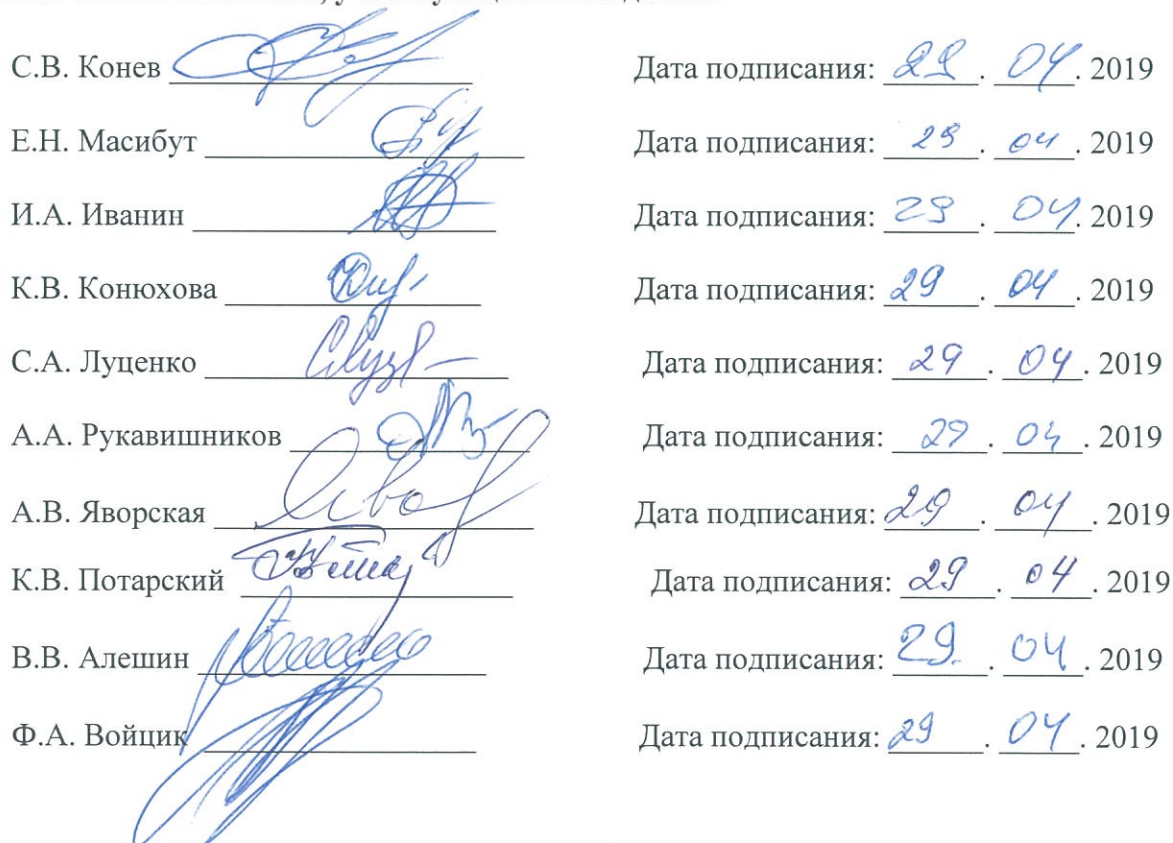 С.В. Конев Дата подписания: 29. 04. 2019
Е.Н. Масибут Дата подписания: 29. 04. 2019
И.А. Иванин Дата подписания: 29. 04. 2019
К.В. Конюхова Дата подписания: 29. 04. 2019
С.А. Луценко Дата подписания: 29. 04. 2019
А.А. Рукавишников Дата подписания: 29. 04. 2019
А.В. Яворская Дата подписания: 29. 04. 2019
К.В. Потарский Дата подписания: 29. 04. 2019
В.В. Алешин Дата подписания: 29. 04. 2019
Ф.А. Войцик Дата подписания: 29. 04. 2019